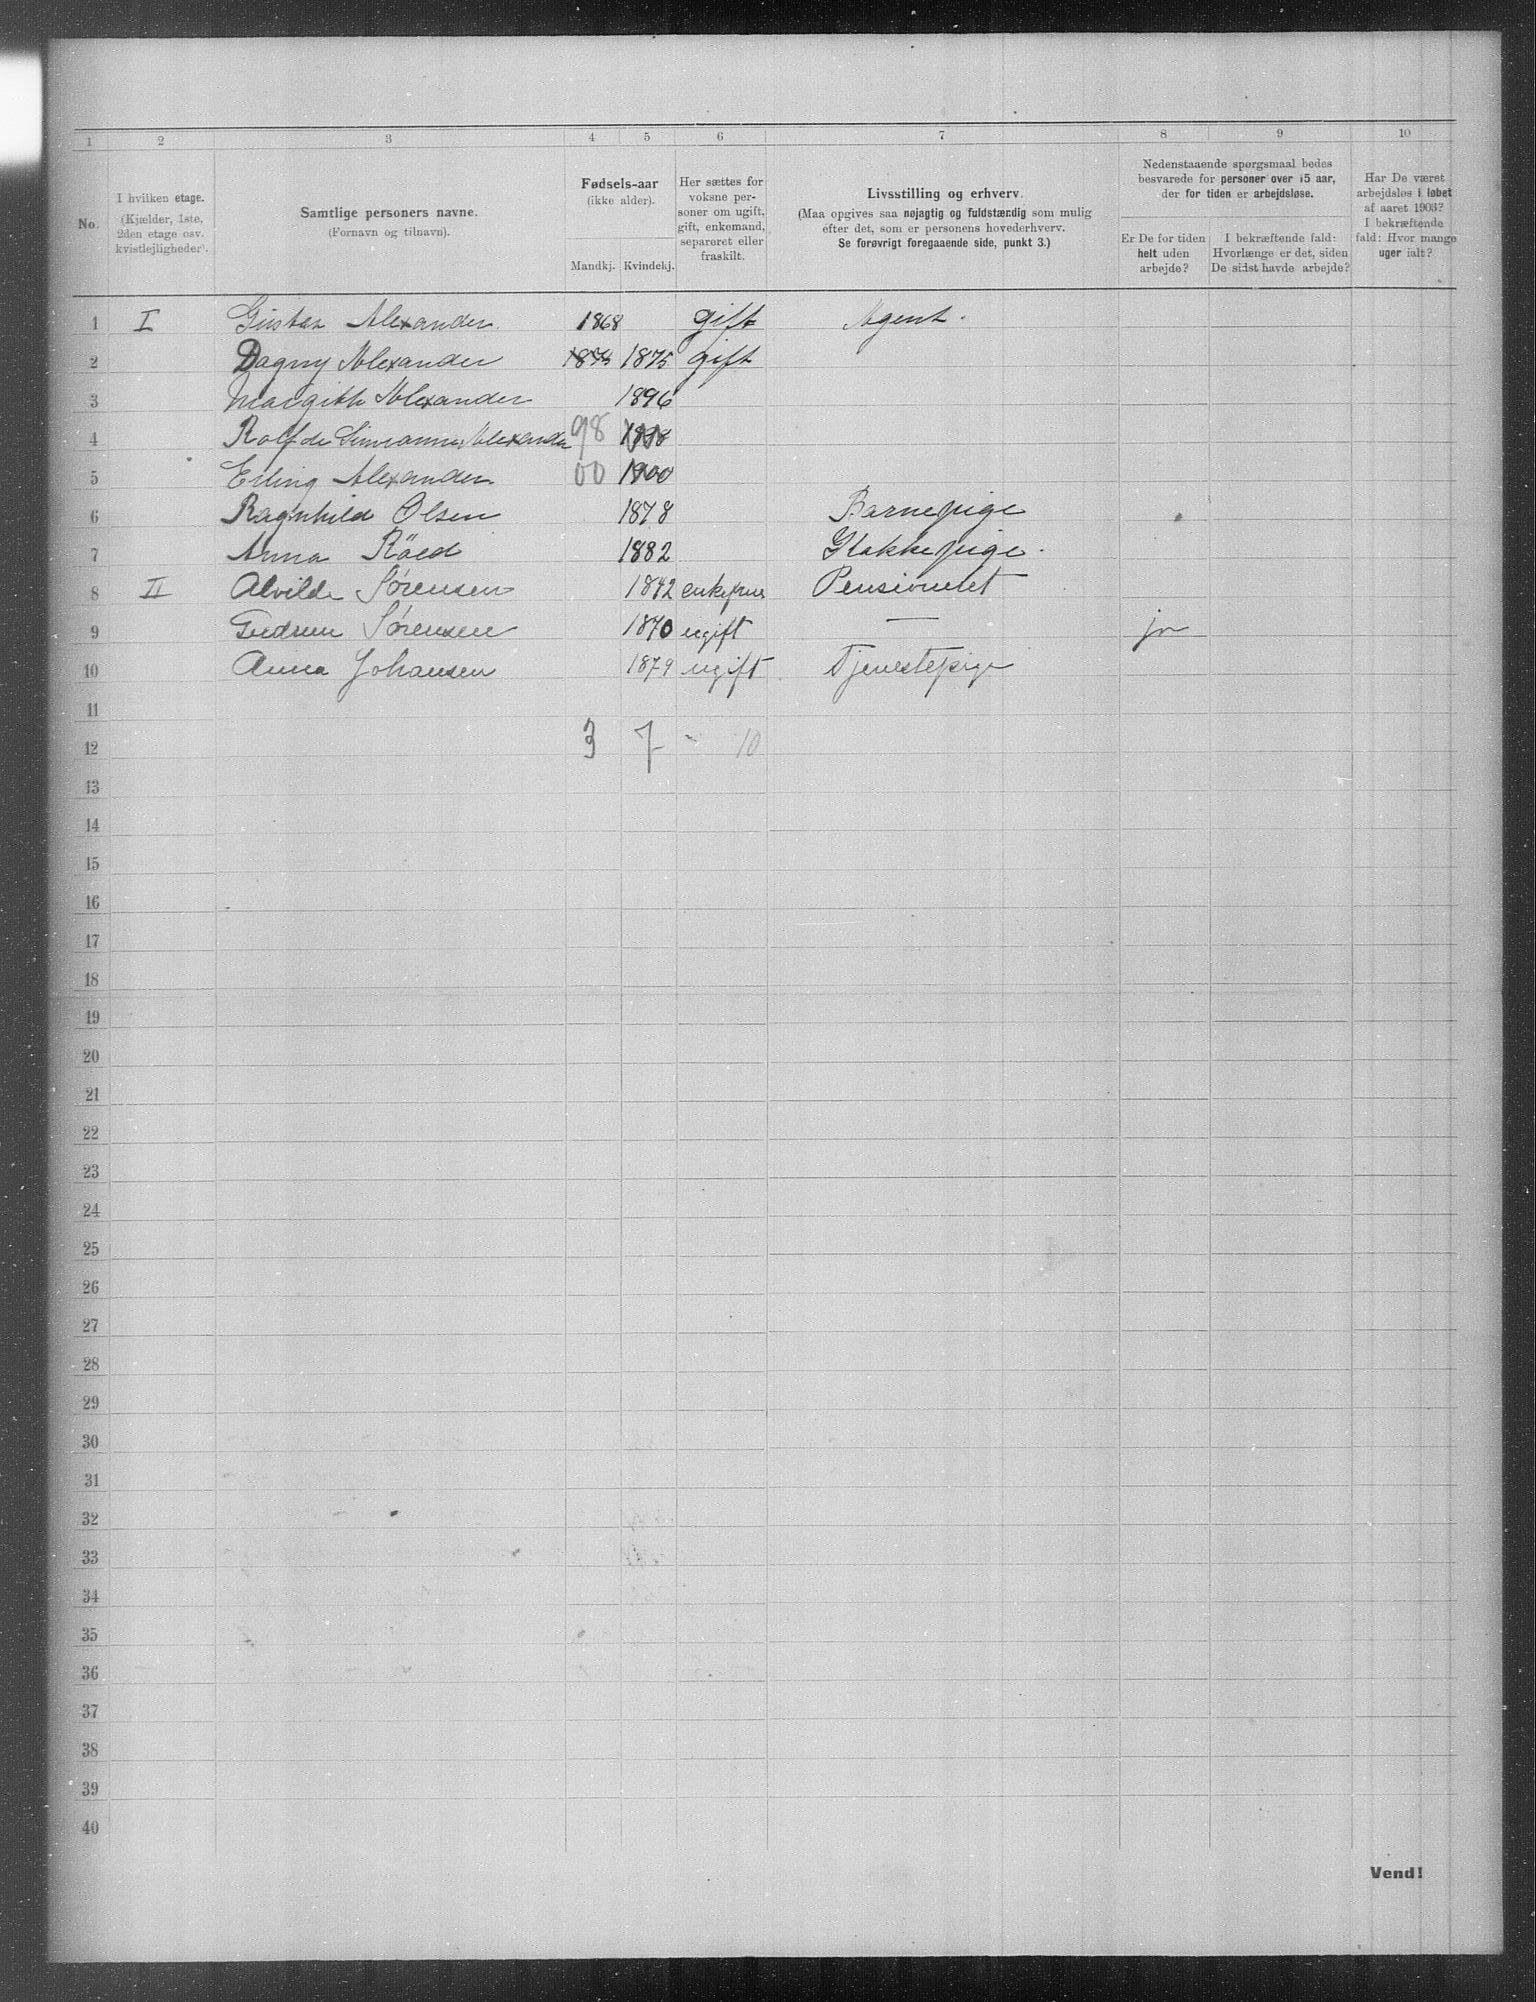 1 2 3 4 5 6 7 8 9 10
No.
I hvilken etage.
(Kjælder, 1ste,
2den etage osv.
kvistlejligheder).
Samtlige personers navne.
(Fornavn og tilnavn).
Fødsels-aar
(ikke alder).
Mandkj. Kvindekj.
Her sættes for
voksne per-
soner om ugift,
gift, enkemand,
separeret eller
fraskilt.
Livsstilling og erhverv.
(Maa opgives saa nøjagtig og fuldstændig som mulig
efter det, som er personens hovederhverv.
Se forøvrigt foregaaende side, punkt 3.)
Nedenstaaende spørgsmaal bedes
besvarede for personer over 15 aar,
der for tiden er arbejdsløse.
Er De for tiden
helt uden
arbejde?
I bekræftende fald:
Hvorlænge er det, siden
De sidst havde arbejde?
Har De været
arbejdsløs i løbet
af aaret 1903?
I bekræftende
fald: Hvor mange
uger ialt?
1 I Gustav Alexander 1868 gift Agent.
2 Dagny Alexander 1875 1875 gift
3 Margith Alexander 1896
4 Rolf de Alexander 98 1898
5 Erling Alexander 00 1900
6 Ragnhild Olsen 1878 Barnepige
7 Anna Röed 1882 Kokkepige.
8 II Alvilde Sørensen 1842 enkefrue Pensioneret
9 Gudrun Sørensen 1870 ugift — ja
10 Anna Johansen 1879 ugift Tjenestepige
11
12 3 7 - 10
13
14
15
16
17
18
19
20
21
22
23
24
25
26
27
28
29
30
31
32
33
34
35
36
37
38
39
40
Vend!